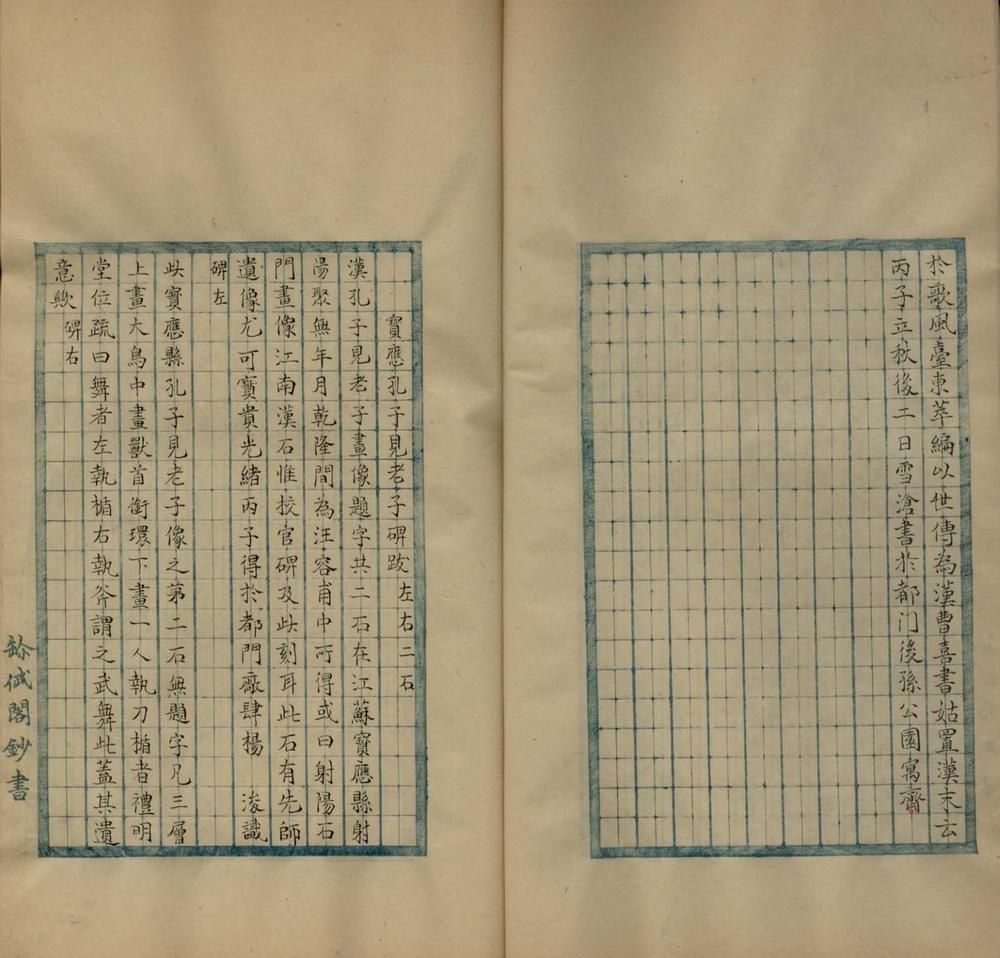 於歌風臺東萃編以世傳為漢曹喜書姑置漢末云
丙子立秋後二日雪滄書於都门後孫公園寓齋
寶應孔子見老子碑跋左右二石
漢孔子見老子畫像題字共二石在江蘇寶應縣射
陽聚無年月乾隆間為汪容甫中所得或曰射陽石
門畫像江南漢石惟校官碑及此刻耳此石有先師
遺像尤可寶貴光緒丙子得於都門廠肆楊 浚識
碑左
此寶應縣孔子見老子像之第二石無題字凡三層
上畫大鳥中畫獸首銜環下畫一人執刀楯者禮明
堂位疏曰舞者左執楯右執斧謂之武舞此蓋其遺
意歟 碑右
閣鈔書